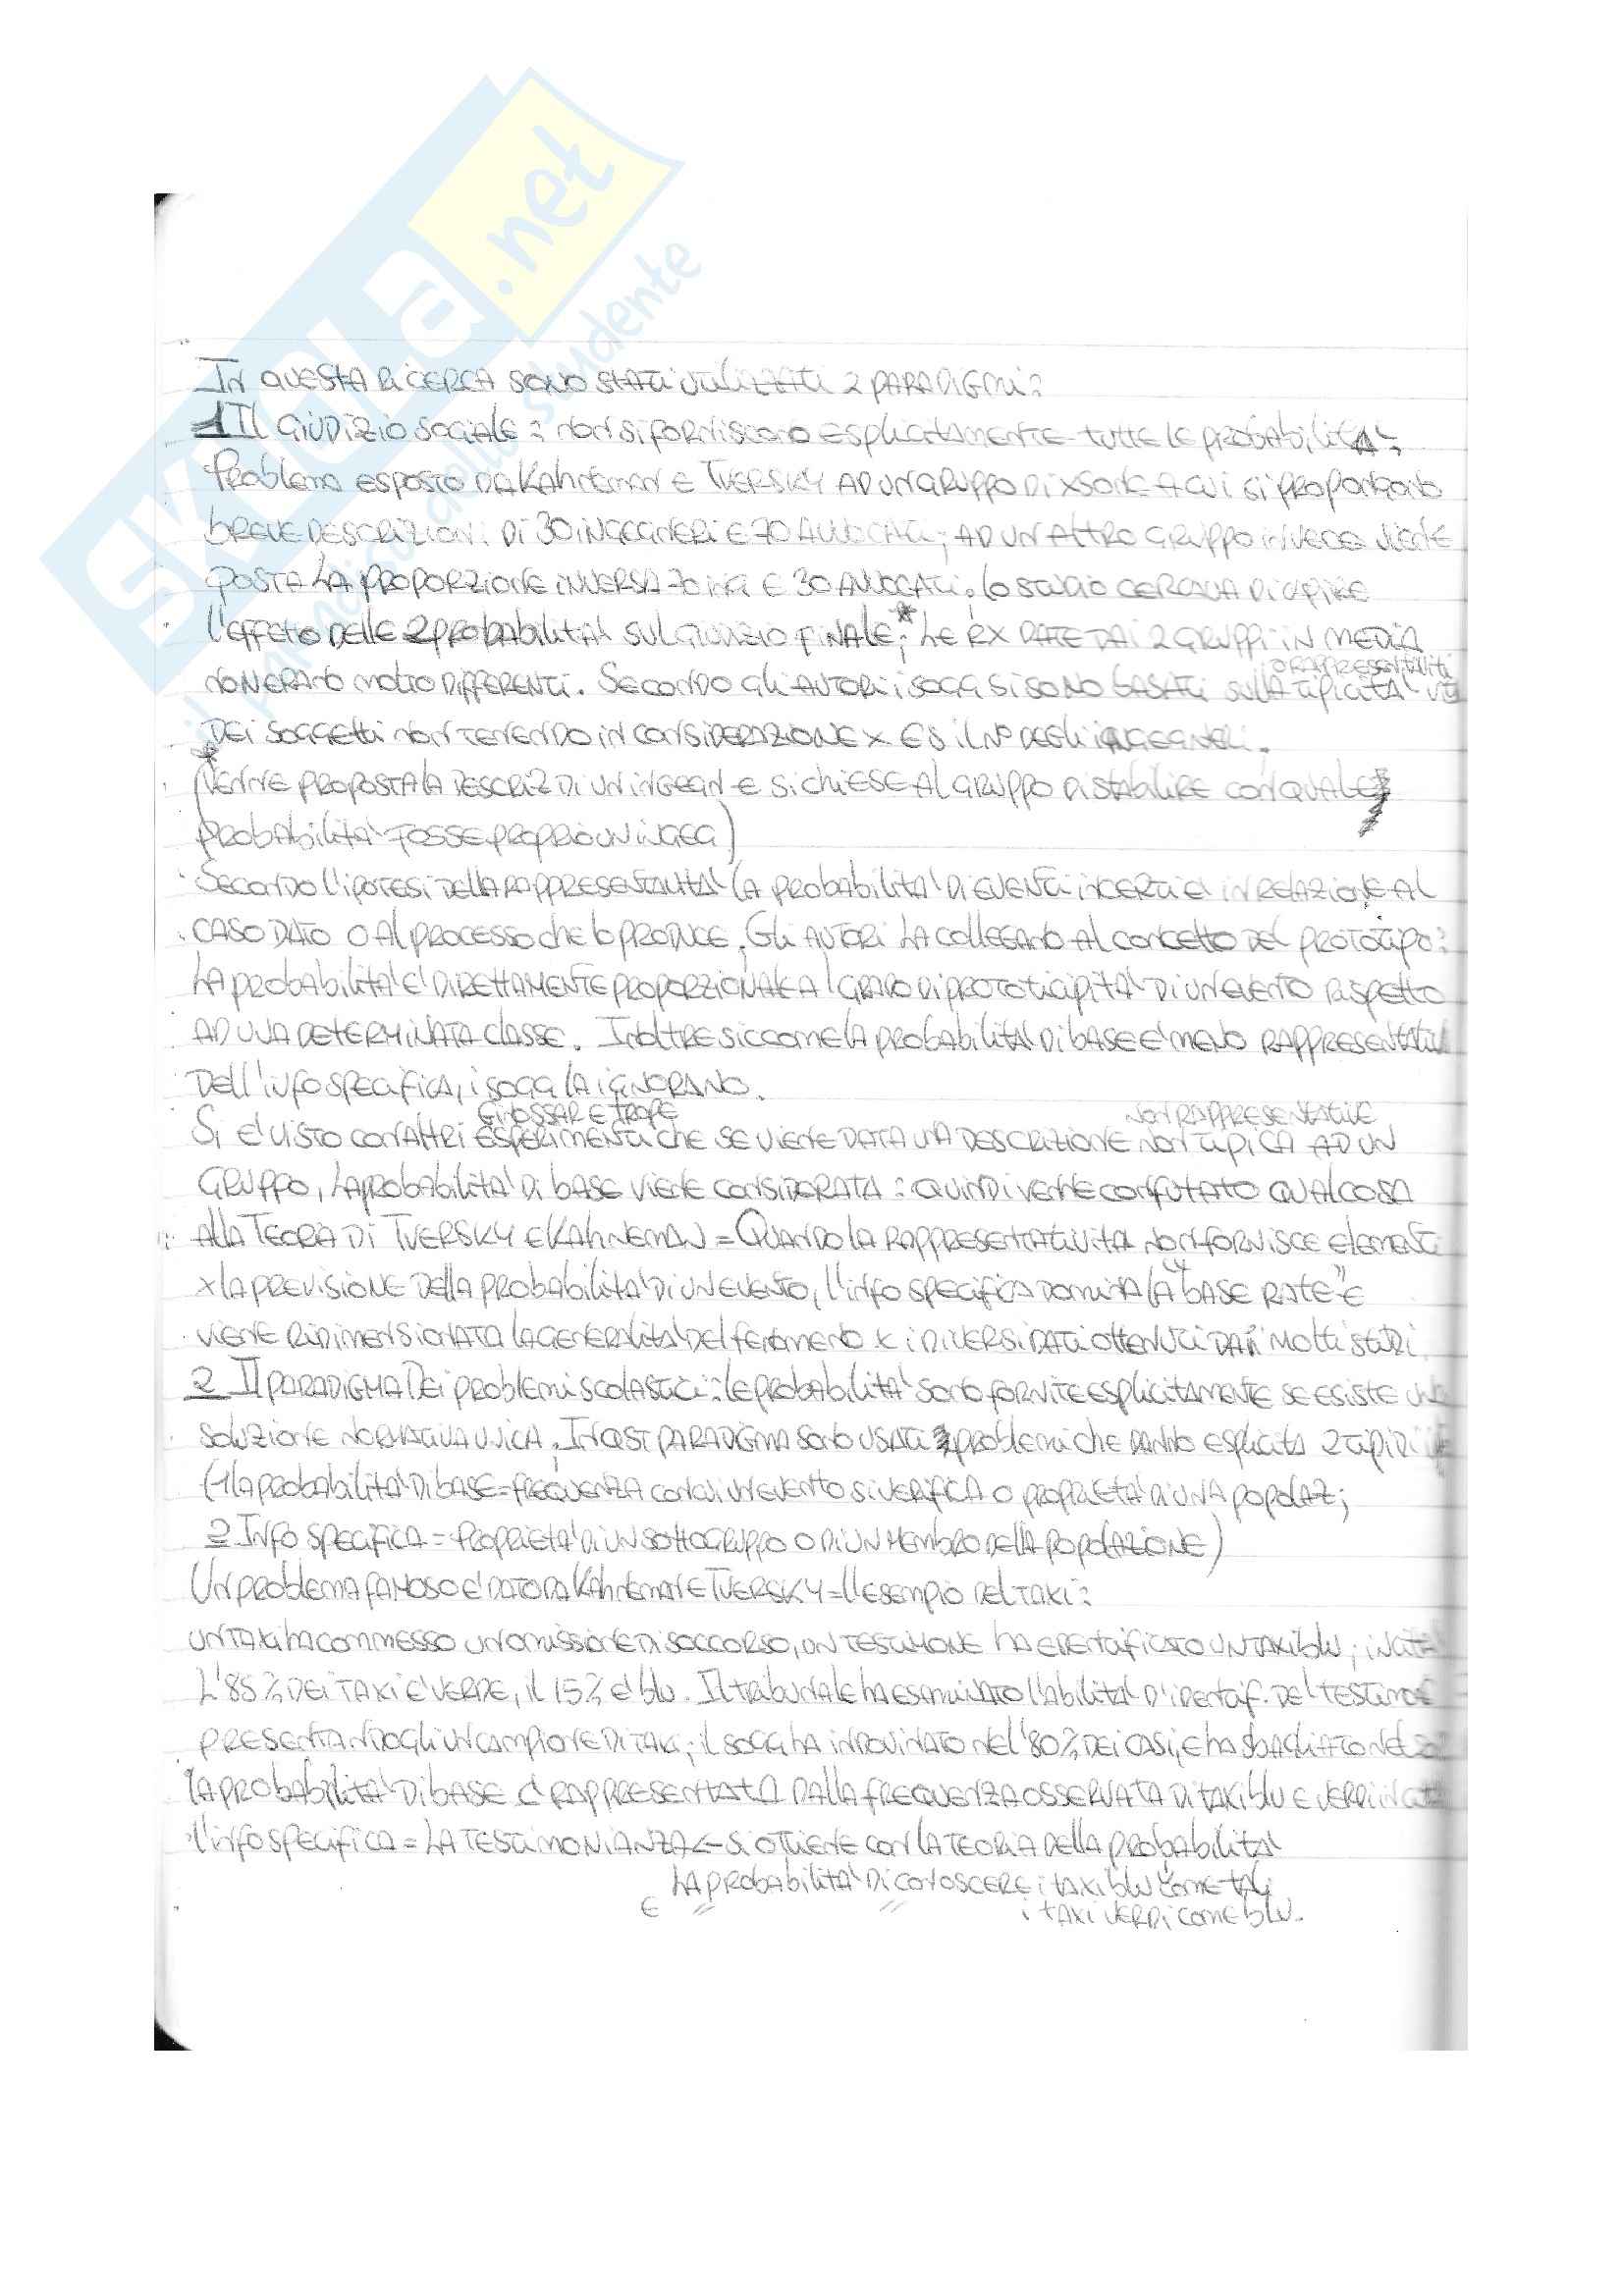 SKUOLA.net
il paradiso dello studente
In questa ricerca sono stati utilizzati 2 paradigmi:
1 Il giudizio sociale: non si forniscono esplicitamente tutte le probabilità;
Problema esposto da Kahneman e Tversky ad un gruppo di xsone a cui si propongono
breve descrizioni di 30 ingegneri e 70 avvocati; ad un altro gruppo invece viene
posta la proporzione inversa 70 ing e 30 avvocati. Lo studio cercava di capire
l'effetto delle 2 probabilità sul giudizio finale;* le rx date dai 2 gruppi in media
o rappresentatività
non erano molto differenti. Secondo gli autori i sogg si sono basati sulla tipicità
dei soggetti non tenendo in considerazione x es il n° degli ingegneri.
* (venne proposta la descriz di un ingegn e si chiese al gruppo di stabilire con quale
probabilità fosse proprio un ingeg)
Secondo l'ipotesi della rappresentatività la probabilità di eventi incerti è in relazione al
caso dato o al processo che lo produce. Gli autori la collegano al concetto del prototipo:
la probabilità è direttamente proporzionale al grado di prototipità di un evento rispetto
ad una determinata classe. Inoltre siccome la probabilità di base è meno rappresentativa
dell'info specifica, i sogg la ignorano.
Ginossar e Trope non rappresentative
Si è visto con altri esperimenti che se viene data una descrizione non tipica ad un
gruppo, la probabilità di base viene considerata: quindi venne confutato qualcosa
alla teoria di Tversky e Kahneman = Quando la rappresentatività non fornisce elementi
x la previsione della probabilità di un evento, l'info specifica domina la "base rate" e
viene ridimensionata la generalità del fenomeno x i diversi dati ottenuti da molti studi.
2 Il paradigma dei problemi scolastici: le probabilità sono fornite esplicitamente se esiste una
soluzione normativa unica. In quest paradigma sono usati problemi che danno esplicita 2 tipi di
(1 la probabilità di base = frequenza con cui un evento si verifica o proprietà di una popolaz;
2 Info specifica = proprietà di un sottogruppo o di un membro della popolazione)
Un problema famoso è dato da Kahneman e Tversky = l'esempio del taxi:
un taxi ha commesso un omissione di soccorso, un testimone ha identificato un taxi blu; in città
l'85% dei taxi è verde, il 15% è blu. Il tribunale ha esaminato l'abilità d'identif. del testimone
presentandogli un campione di taxi; il sogg ha indovinato nell'80% dei casi, e ha sbagliato nel
la probabilità di base è rappresentata dalla frequenza osservata di taxi blu e verdi in città
l'info specifica = la testimonianza ← si ottiene con la teoria della probabilità
la probabilità di conoscere i taxi blu come tali
e " " i taxi verdi come blu.